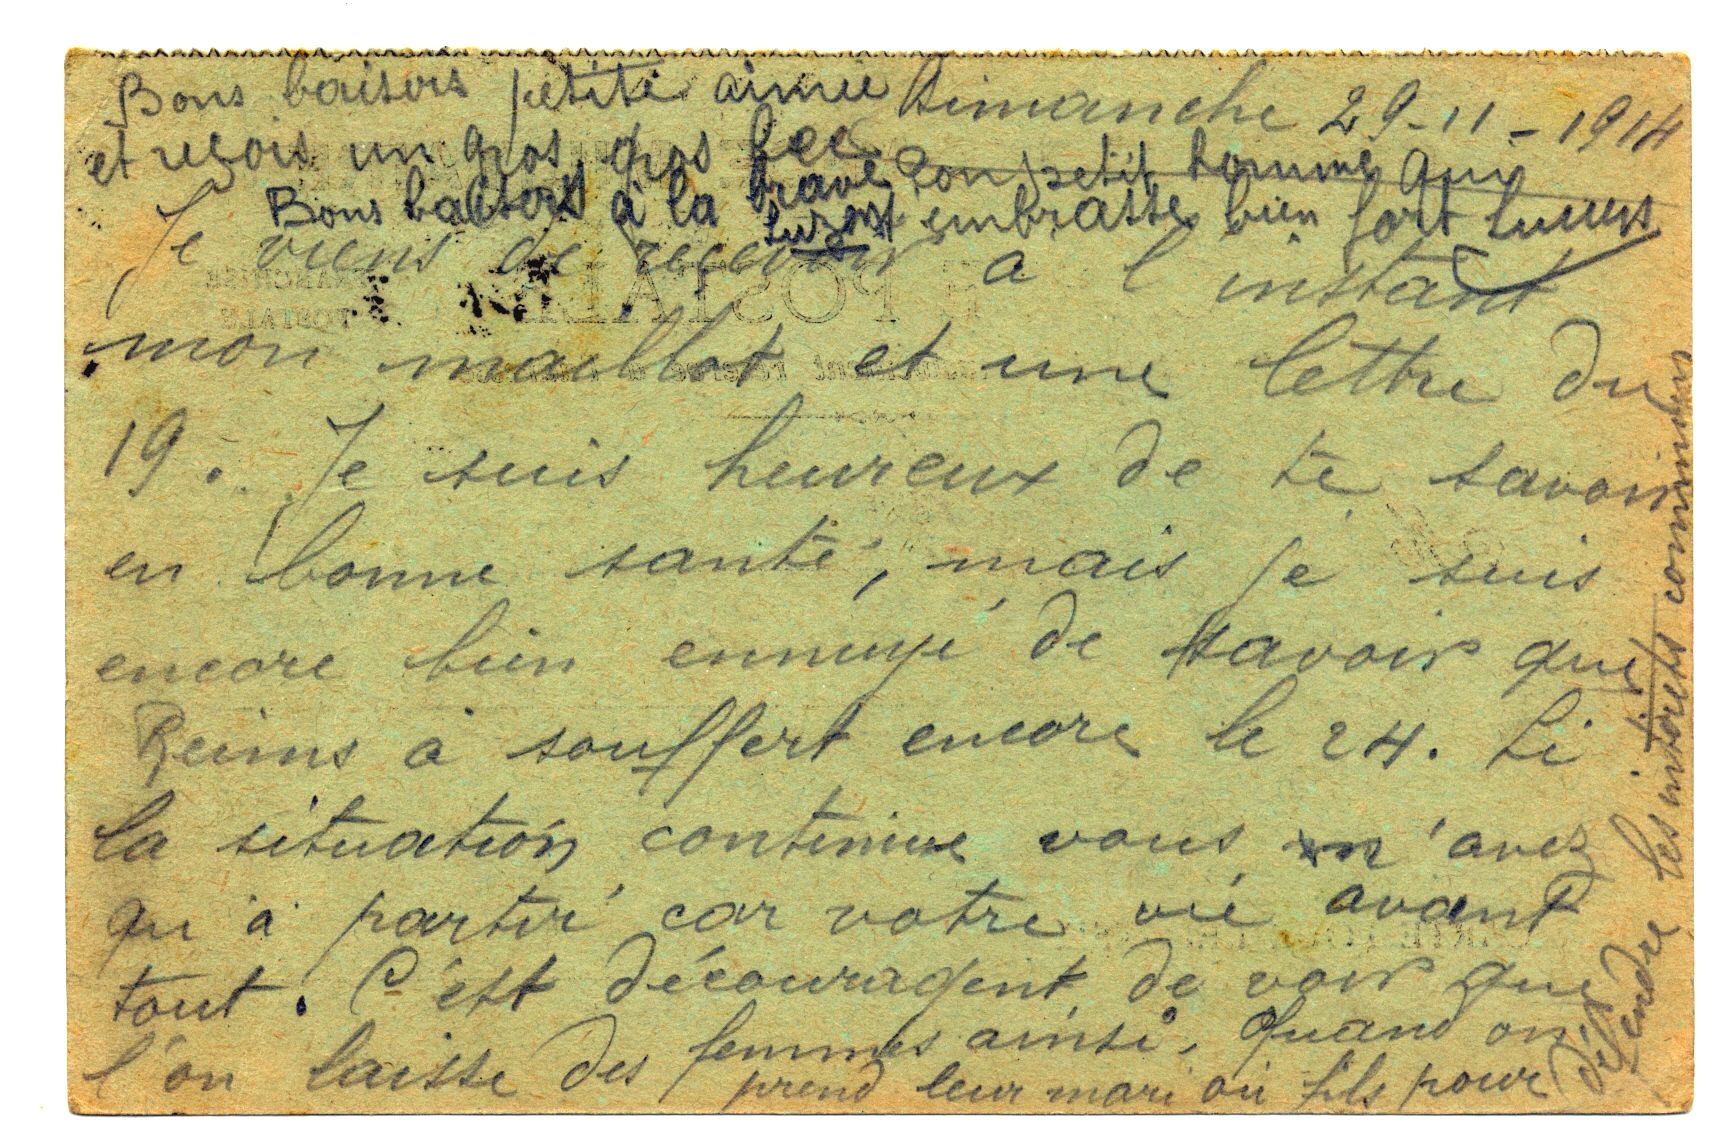 Bons baisers petite aimée
et reçois un gros gros bec
Dimanche 29-11-1914
Ton petit homme qui
Bons baisers à la brave
Suzon embrasse bien fort
Je viens de recevoir a l'instant
mon maillot et une lettre du
19. Je suis heureux de te savoir
en bonne santé, mais je suis
encore bien ennuyé de savoir que
Reims à souffert encore le 24. Si
la situation continue vous n'avez
qu'à partir car votre vie avant
tout. C'est décourageant de voir que
l'on laisse des femmes ainsi, quand on
prend leur mari ou fils pour
défendre les intérêts communs